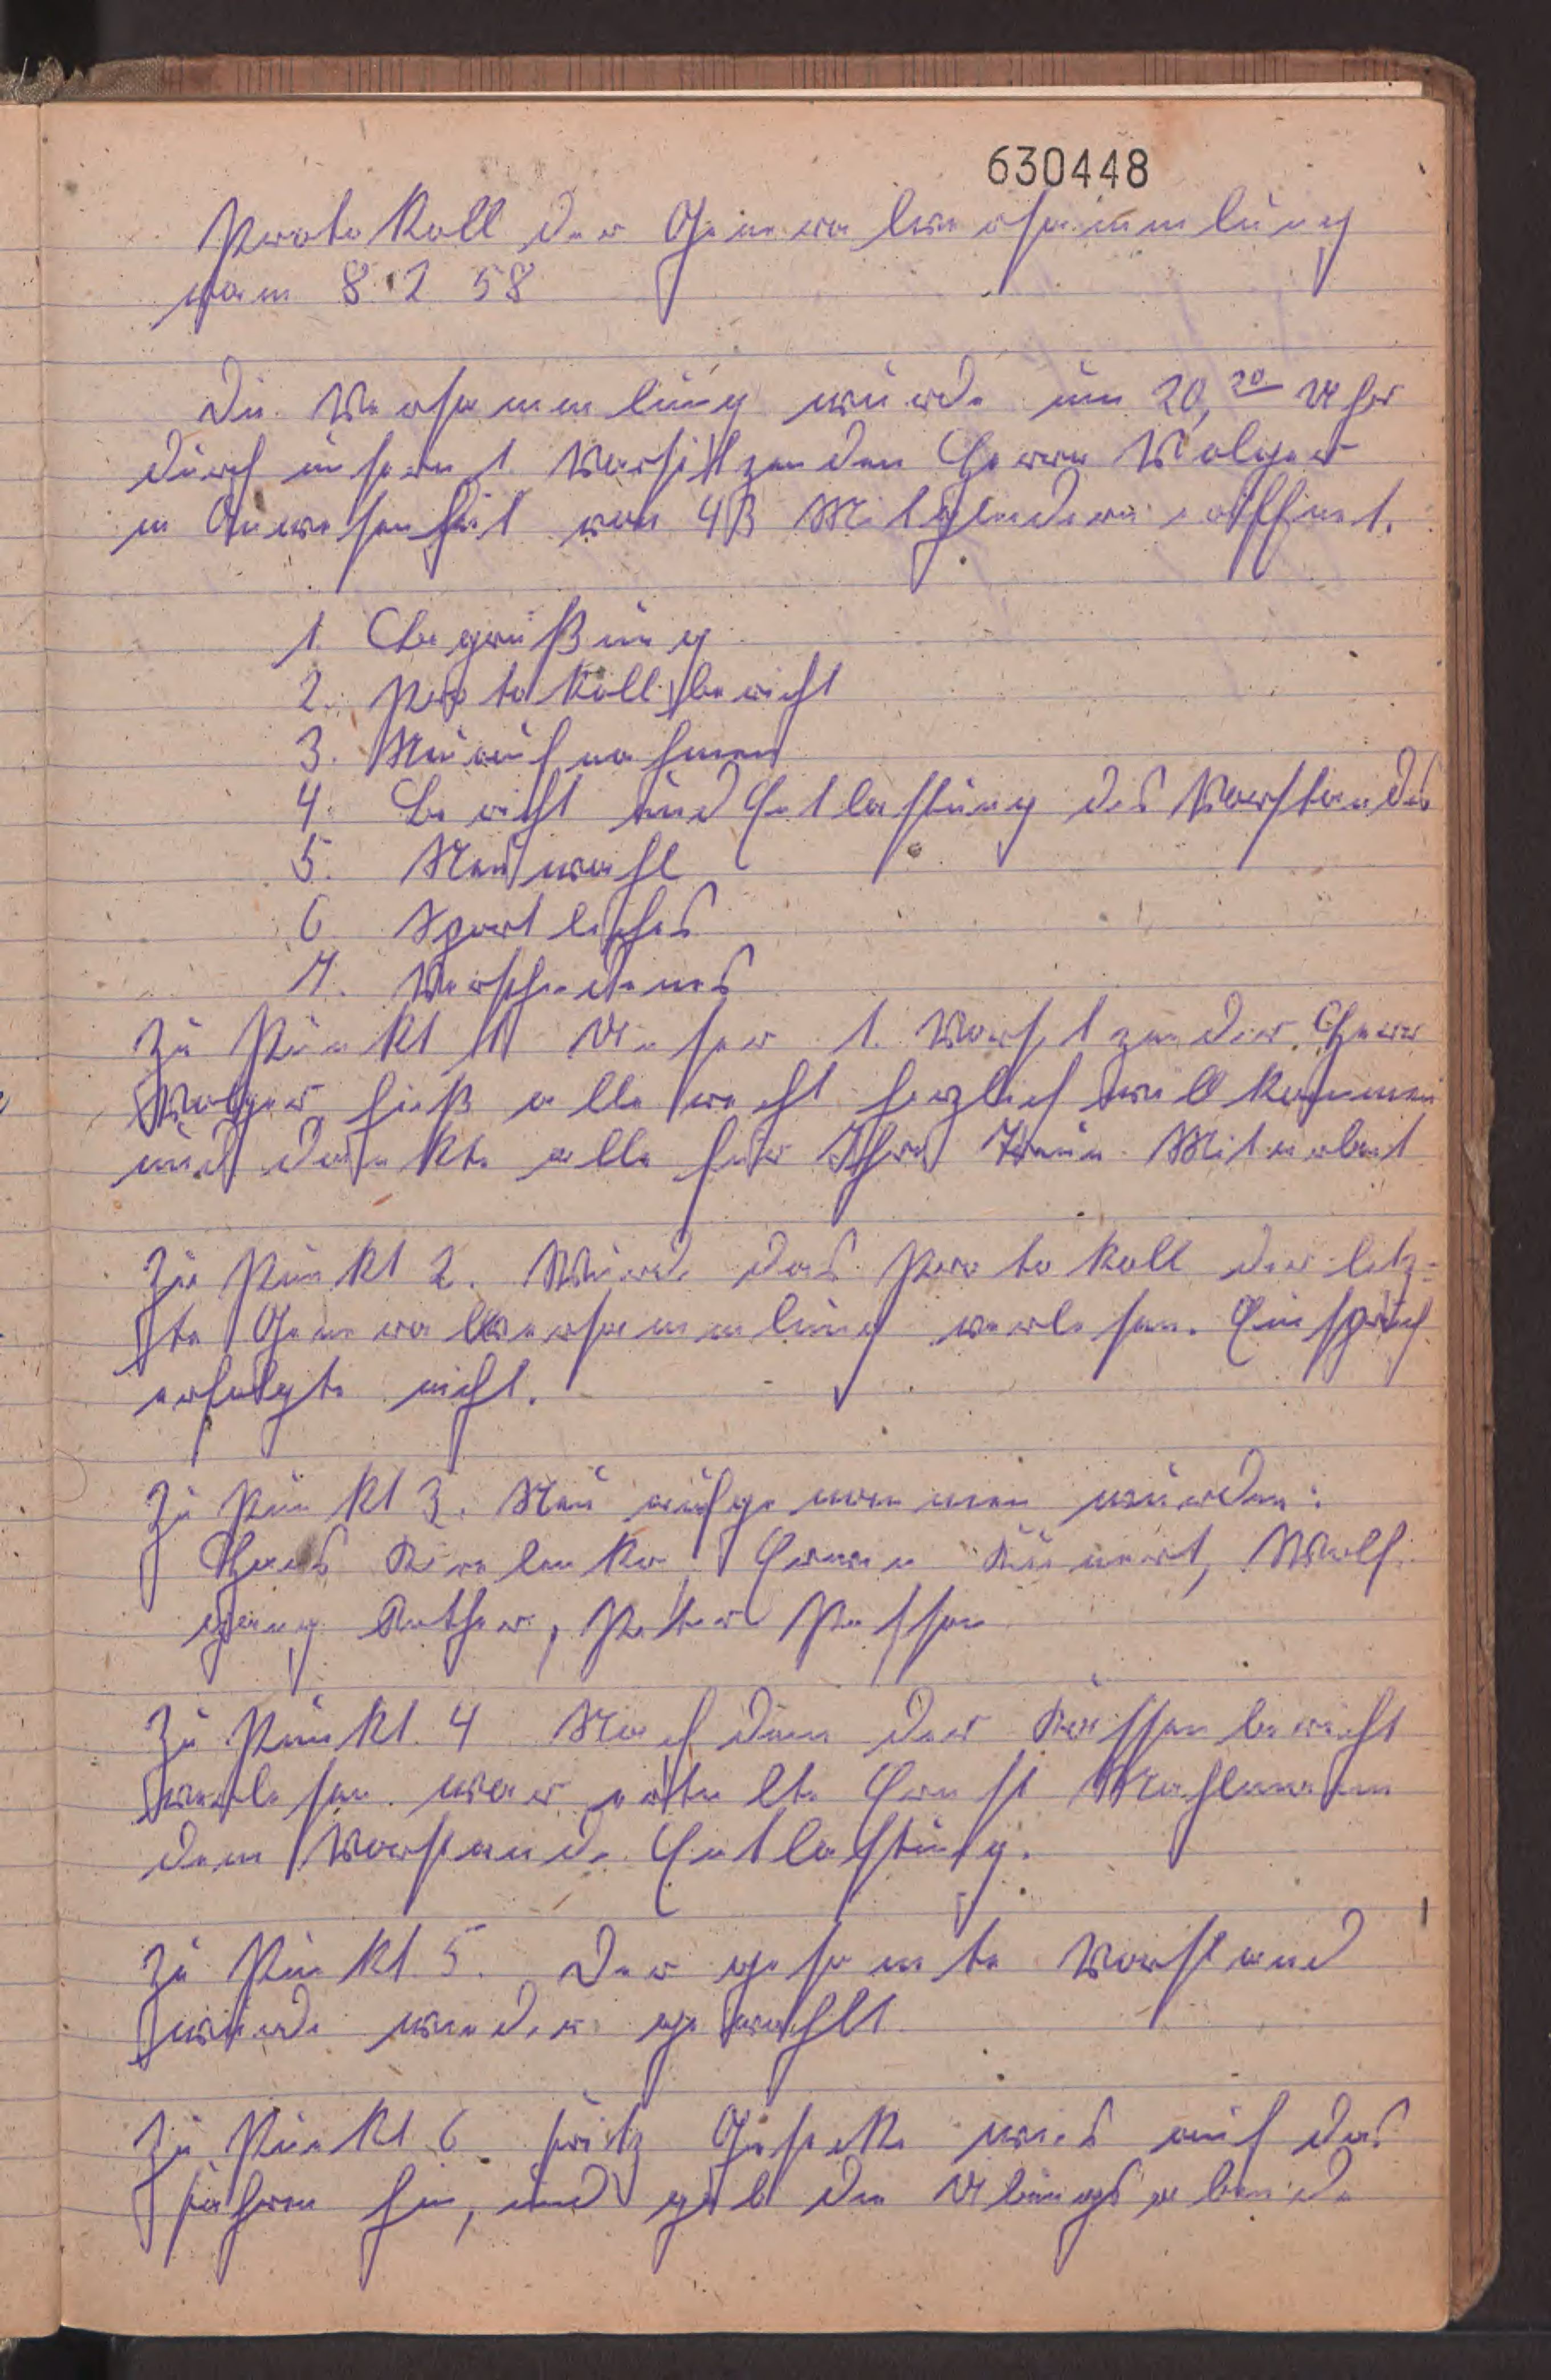 630448
Protokoll der Generalversammlung
vom 8.2 58
Die Versammlung wurde um 20,20 Uhr
durch unsern 1. Vorsitzenden Herrn Wolger
in Anwesenheit von 43 Mitgliedern eröffnet.
1. Begrüßung
2. Protokollbericht
3. Neuaufnahmen
4. Bericht und Entlastung des Vorstandes
5. Neuwahl
6 Sportliches
7. Verschiedenes
Zu Punkt 1 Unser 1. Vorsitzender Herr
Wolger hieß alle recht herzlich willkommen
und dankte alle für Ihre Treue Mitarbeit
Zu Punkt 2. Wurde das Protokoll der letz-
te Generalversammlung verlesen. Einspruch
erfolgte nicht.
Zu Punkt 3. Neu aufgenommen wurden:
Hans Erwin Wolf
gang Rother, Peter
Zu Punkt 4 Nachdem der Kassenbericht
verlesen war erteilte Ernst Mahlmann
dem Vorstande Entlastung.
Zu Punkt 5. Der gesamte Vorstand
wurde wieder gewählt
Zu Punkt 6 Fritz Gieseke wies auf das
fahren hin, und gab die Übungsabende